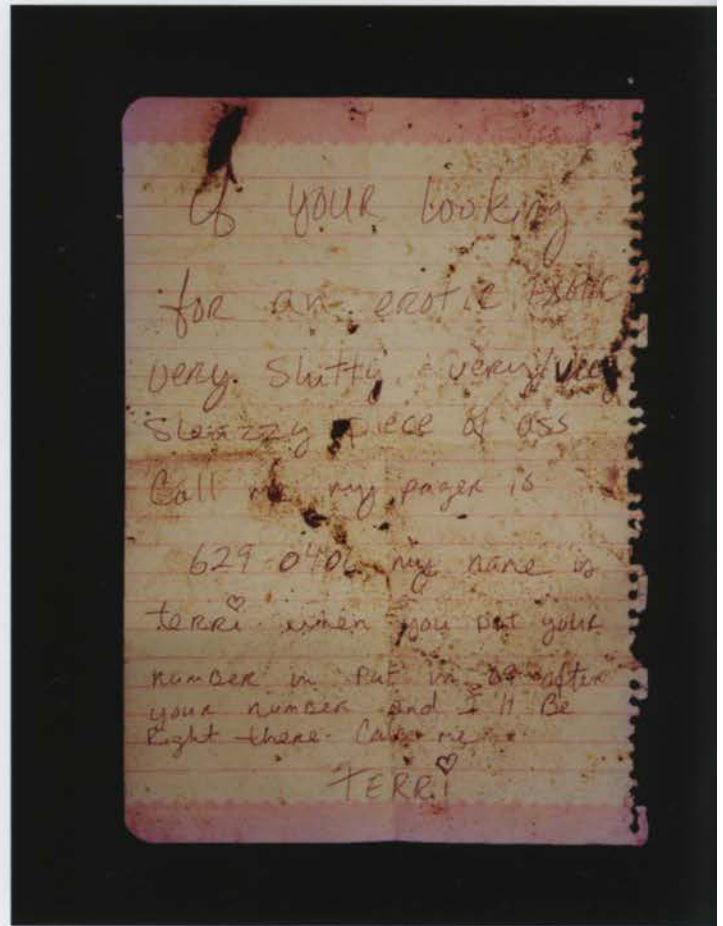 If YOUR Looking
for an erotic Exotic
very Slutty very/very
Sleazzy piece of ass
Call me my pager is
629-0406 my name is
terri when you put your
number in Put in 69 after
your number and I'll Be
Right there. Call me
TERRi